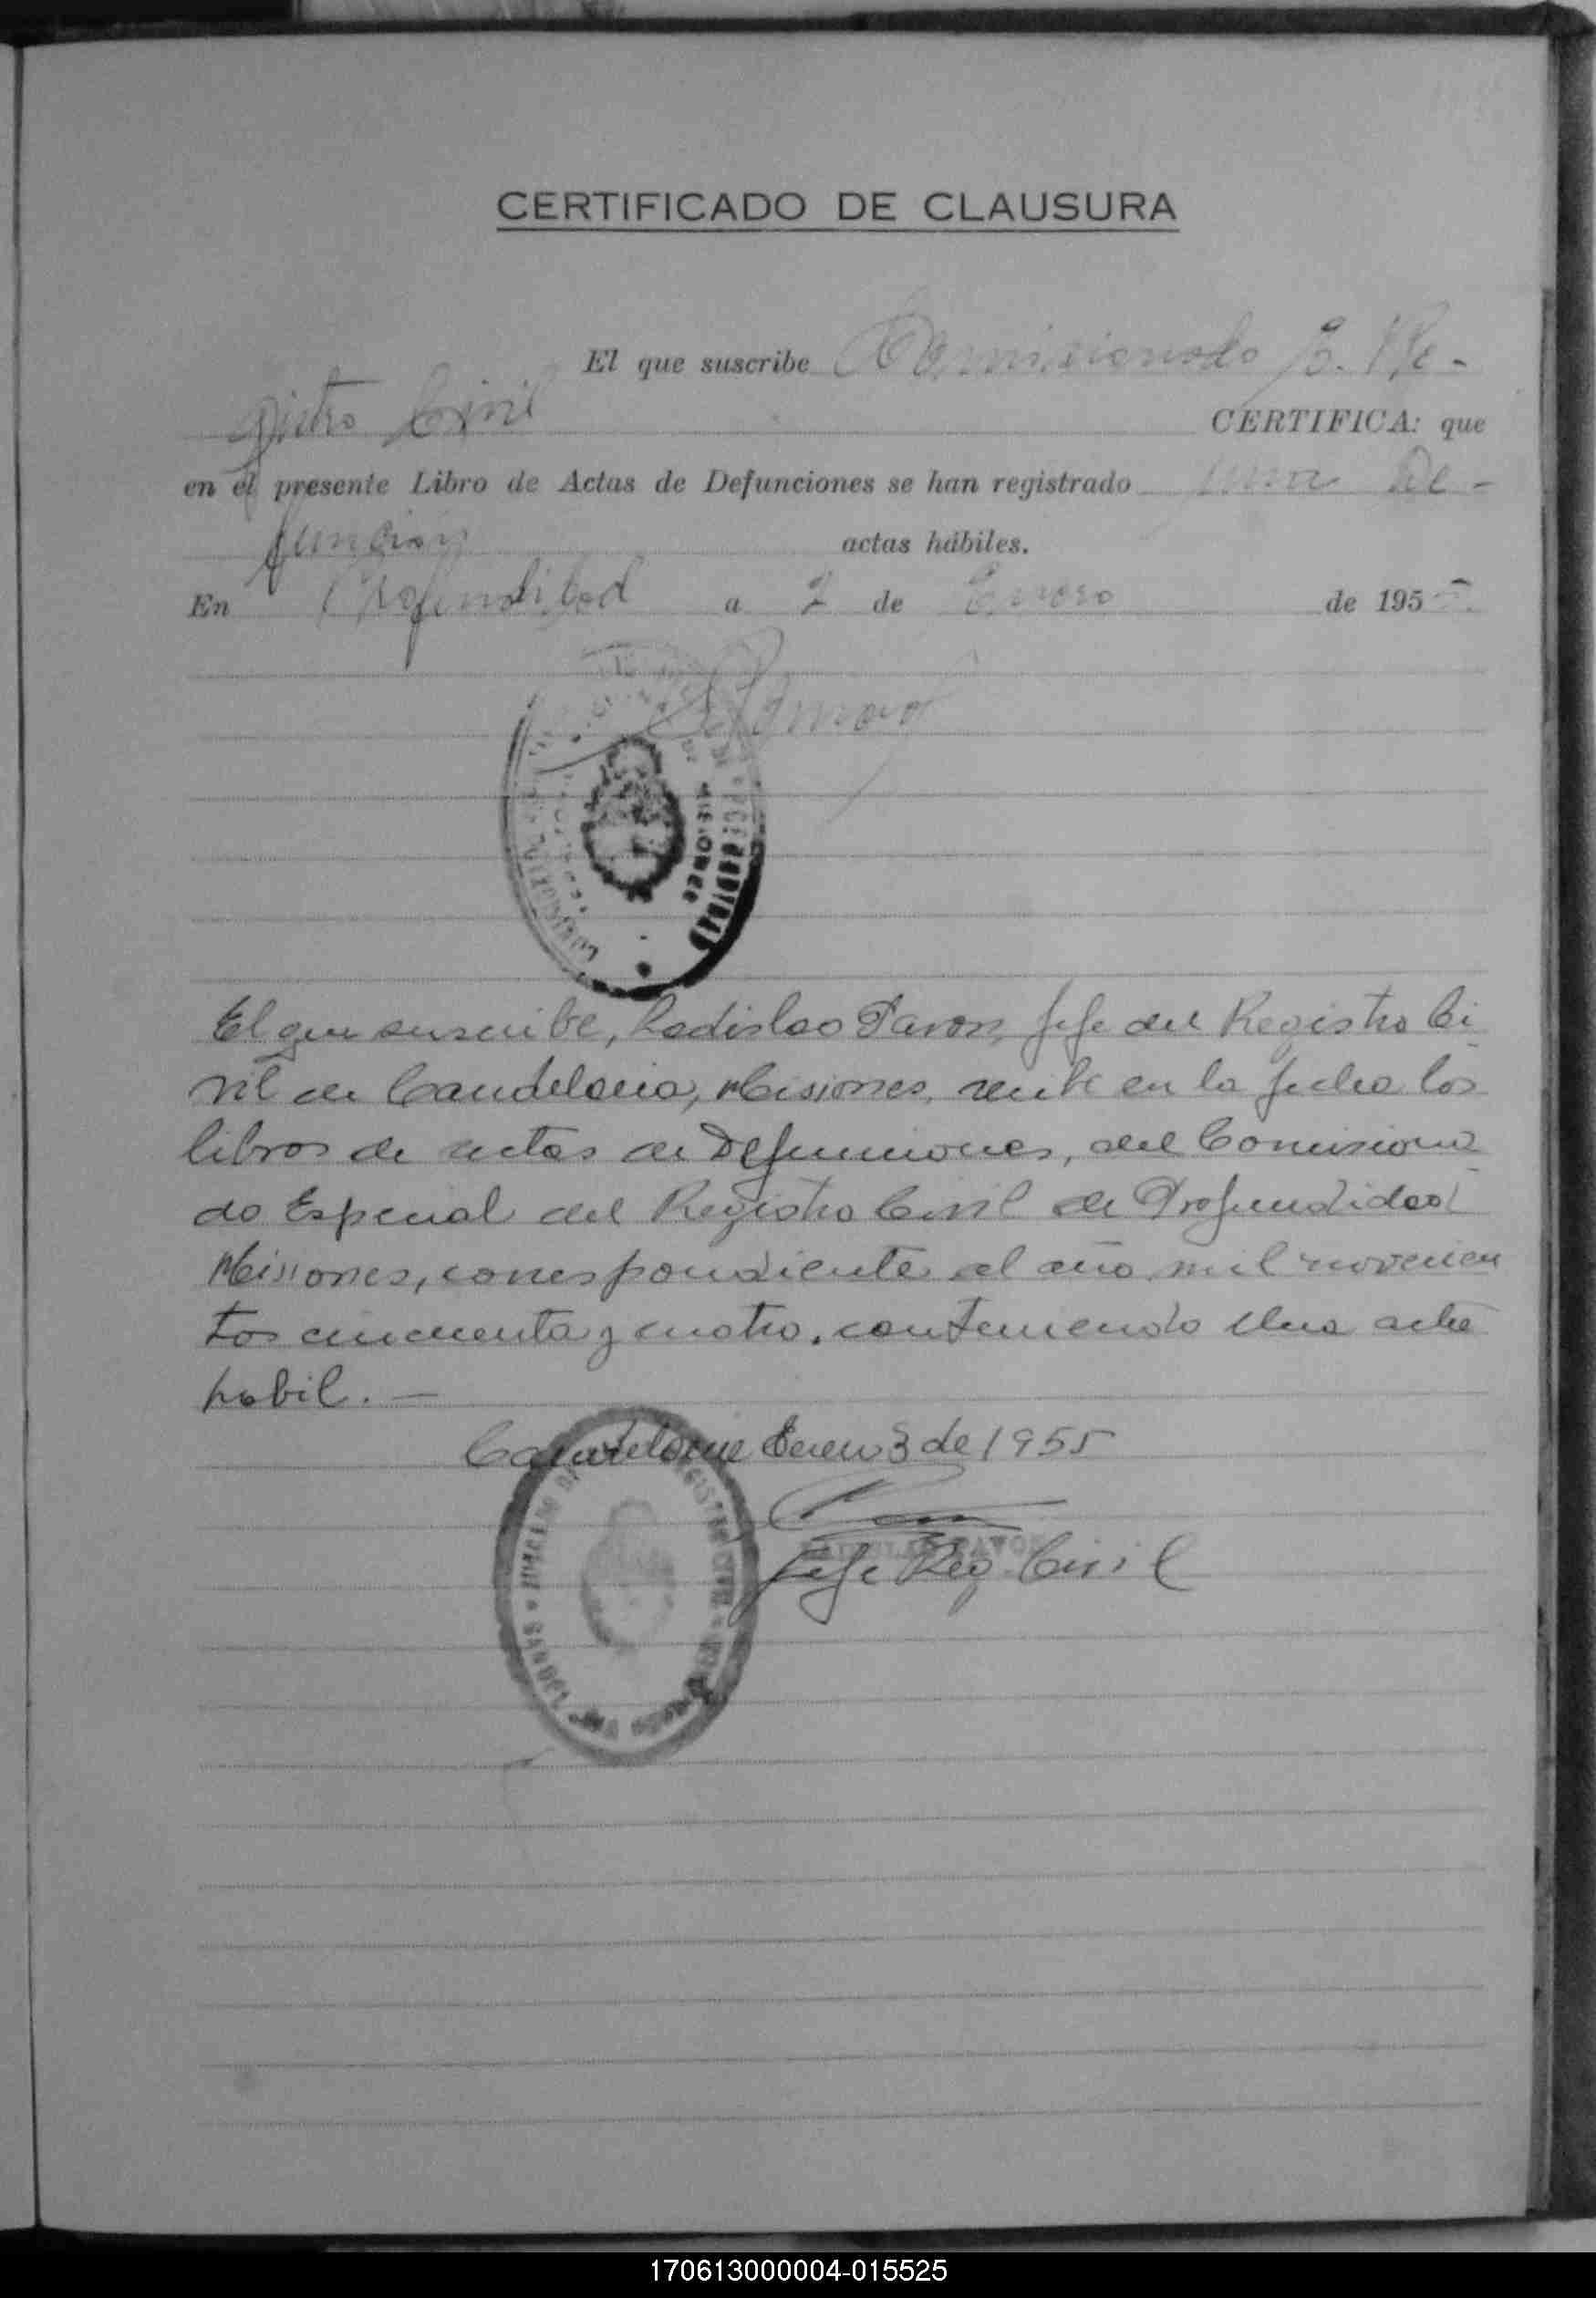 CERTIFICADO DE CLAUSURA
El que suscribe Comisionado E. Re-
gistro Civil CERTIFICA: que
en el presente Libro de Actas de Defunciones se han registrado una De-
función actas hábiles.
En Profundidad a 2 de Enero de 1955
MISIONES
El que suscribe, Ladislao Pavon, Jefe del Registro Ci
vil de Candelaria, Misiones, recibe en la fecha los
libros de actas de Defunciones, del Comisiona
do Especial del Registro Civil de Profundidad
Misiones, correspondiente al año mil novecien
tos cincuenta y cuatro, conteniendo Una acta
habil. —
Candelaria Enero 3 de 1955
Jefe Reg. Civil
170613000004-015525